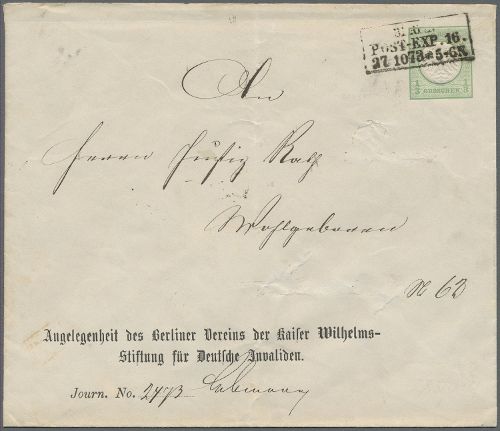 POST-EXP. 16.
27 10 73 * 5-6N.
1/3 GROSCHEN 1/3
An
Herrn Justiz Rath
Wohlgeboren
N 62
Angelegenheit des Berliner Vereins der Kaiser Wilhelms-
Stiftung für Deutsche Invaliden.
Journ. No. 2473